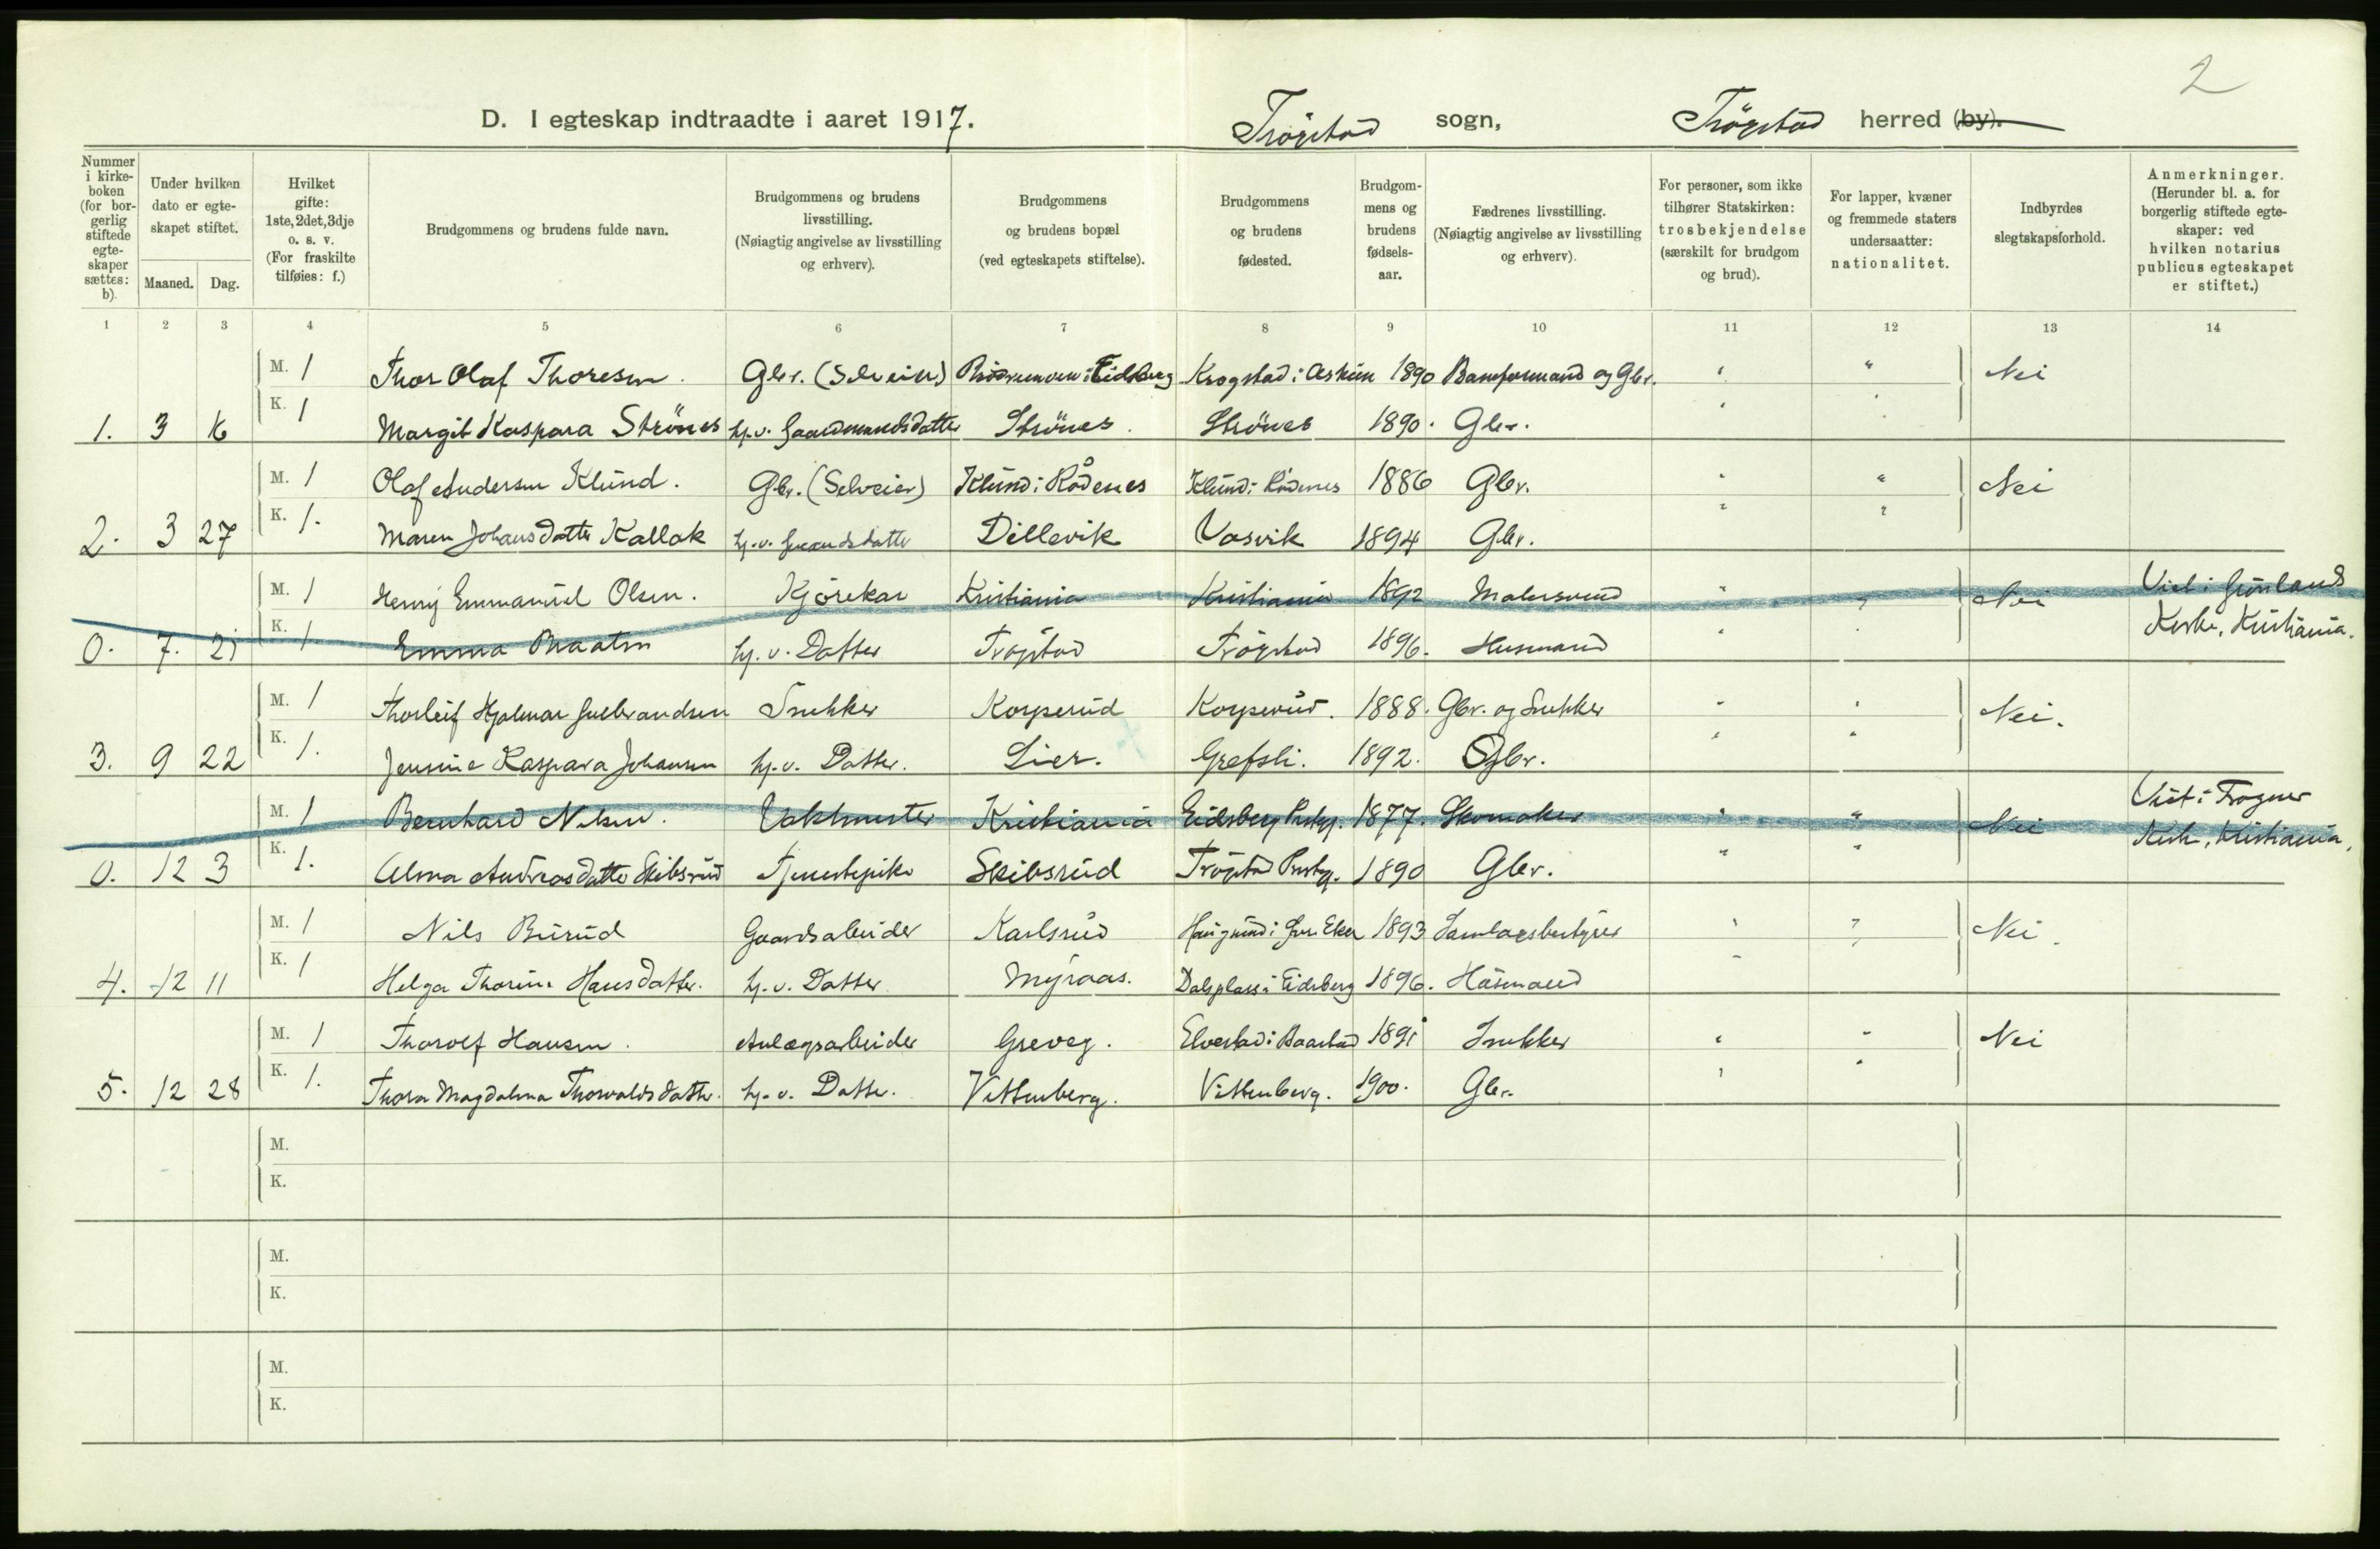 2
D. I egteskap indtraadte i aaret 1917. Trögstad sogn, Trögstad herred (by).
Nummer i kirkeboken (for borgerlig stiftede egteskaper sættes: b).
Under hvilken dato er egteskapet stiftet.
Maaned. Dag.
Hvilket gifte: 1ste, 2det, 3dje o. s. v. (For fraskilte tilføies: f.)
Brudgommens og brudens fulde navn.
Brudgommens og brudens livsstilling. (Nøiagtig angivelse av livsstilling og erhverv).
Brudgommens og brudens bopæl (ved egteskapets stiftelse).
Brudgommens og brudens fødested.
Brudgommens og brudens fødselsaar.
Fædrenes livsstilling. (Nøiagtig angivelse av livsstilling og erhverv).
For personer, som ikke tilhører Statskirken: trosbekjendelse (særskilt for brudgom og brud).
For lapper, kvæner og fremmede staters undersaatter: nationalitet.
Indbyrdes slegtskapsforhold.
Anmerkninger. (Herunder bl. a. for borgerlig stiftede egteskaper: ved hvilken notarius publicus egteskapet er stiftet.)
1 2 3 4 5 6 7 8 9 10 11 12 13 14
M. 1 Thor Olaf Thoresen. Gbr. (Selveier) i Eidsberg Krogstad i Askim 1890 Baneformand og Gbr. " " Nei
1. 3 K. 1 Margit Kaspara Strönes hj.v. Gaardmandsdatter Strönes. Strönes 1890. Gbr. " "
M. 1 Olaf Andersen Klund. Gbr. (Selveier) Klund i Rödenes Klund i Rödenes 1886 Gbr. " " Nei
2. 3 27 K. 1. Maren Johansdatter Kallak hj.v. Gaardmandsdatter Dillevik Vasvik 1894 Gbr. " "
M. 1 Henry Emmanuel Olsen. Kjörekar Kristiania Kristiania 1892 Malersvend " " Nei Viet i Grönlands
0. 7. 21 K. 1. Emma Braaten hj.v. Datter Trögstad Trögstad 1896. Husmand " " Kirke, Kristiania.
M. 1 Thorleif Hjalmar Gulbrandsen Snekker Korperud Korperud. 1888. Gbr. og Snekker " " Nei.
3. 9 22 K. 1. Jensine Kaspara Johansen hj.v. Datter. Lier. Grefsli. 1892. Gbr. " "
M. 1 Bernhard Nilsen. Vaktmester Kristiania Eidsberg Prstg. 1877. Skomaker " " Nei Viet i Frogner
0. 12 3 K. 1. Alma Andreasdatter Skibsrud Tjenestepike Skibsrud Trögstad Prstg. 1890 Gbr. " " Kirke, Kristiania.
M. 1 Nils Burud Gaardsarbeider Karlsrud i Övre Eker 1893 Samlagsbestyrer " " Nei.
4. 12 11 K. 1 Helga Thorine Hansdatter. hj.v. Datter Myraas. Dalsplass i Eidsberg 1896. Husmand "
M. 1 Thorolf Hansen. Anlægsarbeider Greveg. Elvestad i Baastad 1891 Snekker " " Nei
5. 12 28 K. 1. Thora Magdalena Thorvaldsdatter. hj.v. Datter. Vittenberg. Vittenberg. 1900. Gbr. " "
M.
K.
M.
K.
M.
K.